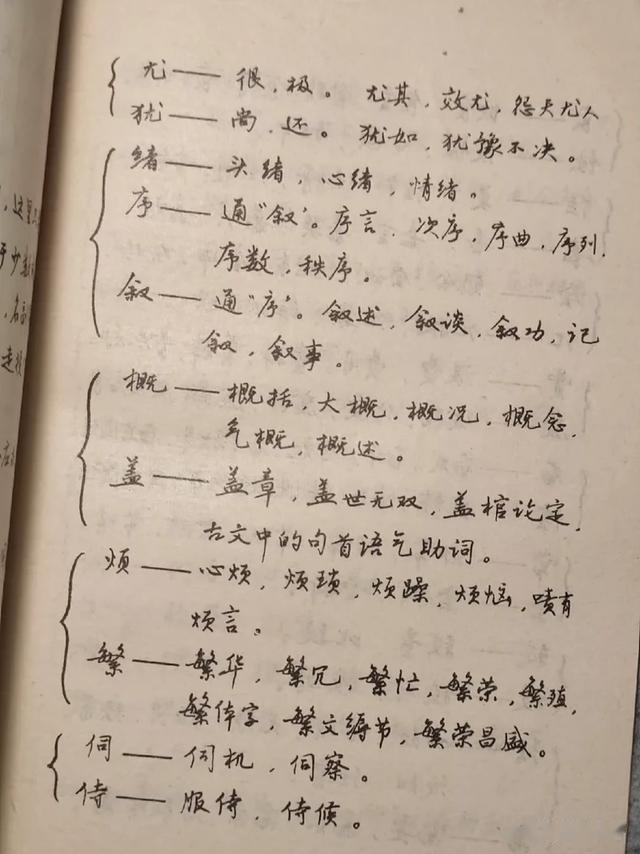 尤——很，极。尤其，效尤，怨天尤人
犹——尚，还。犹如，犹豫不决。
绪——头绪，心绪，情绪。
序——通“叙”。序言，次序，序曲，序列，
序数，秩序。
叙——通“序”。叙述，叙谈，叙功，记
叙，叙事。
概——概括，大概，概况，概念，
气概，概述。
盖——盖章，盖世无双，盖棺论定，
古文中的句首语气助词。
烦——心烦，烦琐，烦躁，烦恼，啧有
烦言。
繁——繁华，繁冗，繁忙，繁荣，繁殖，
繁体字，繁文缛节，繁荣昌盛。
伺——伺机，伺察。
侍——服侍，侍候。